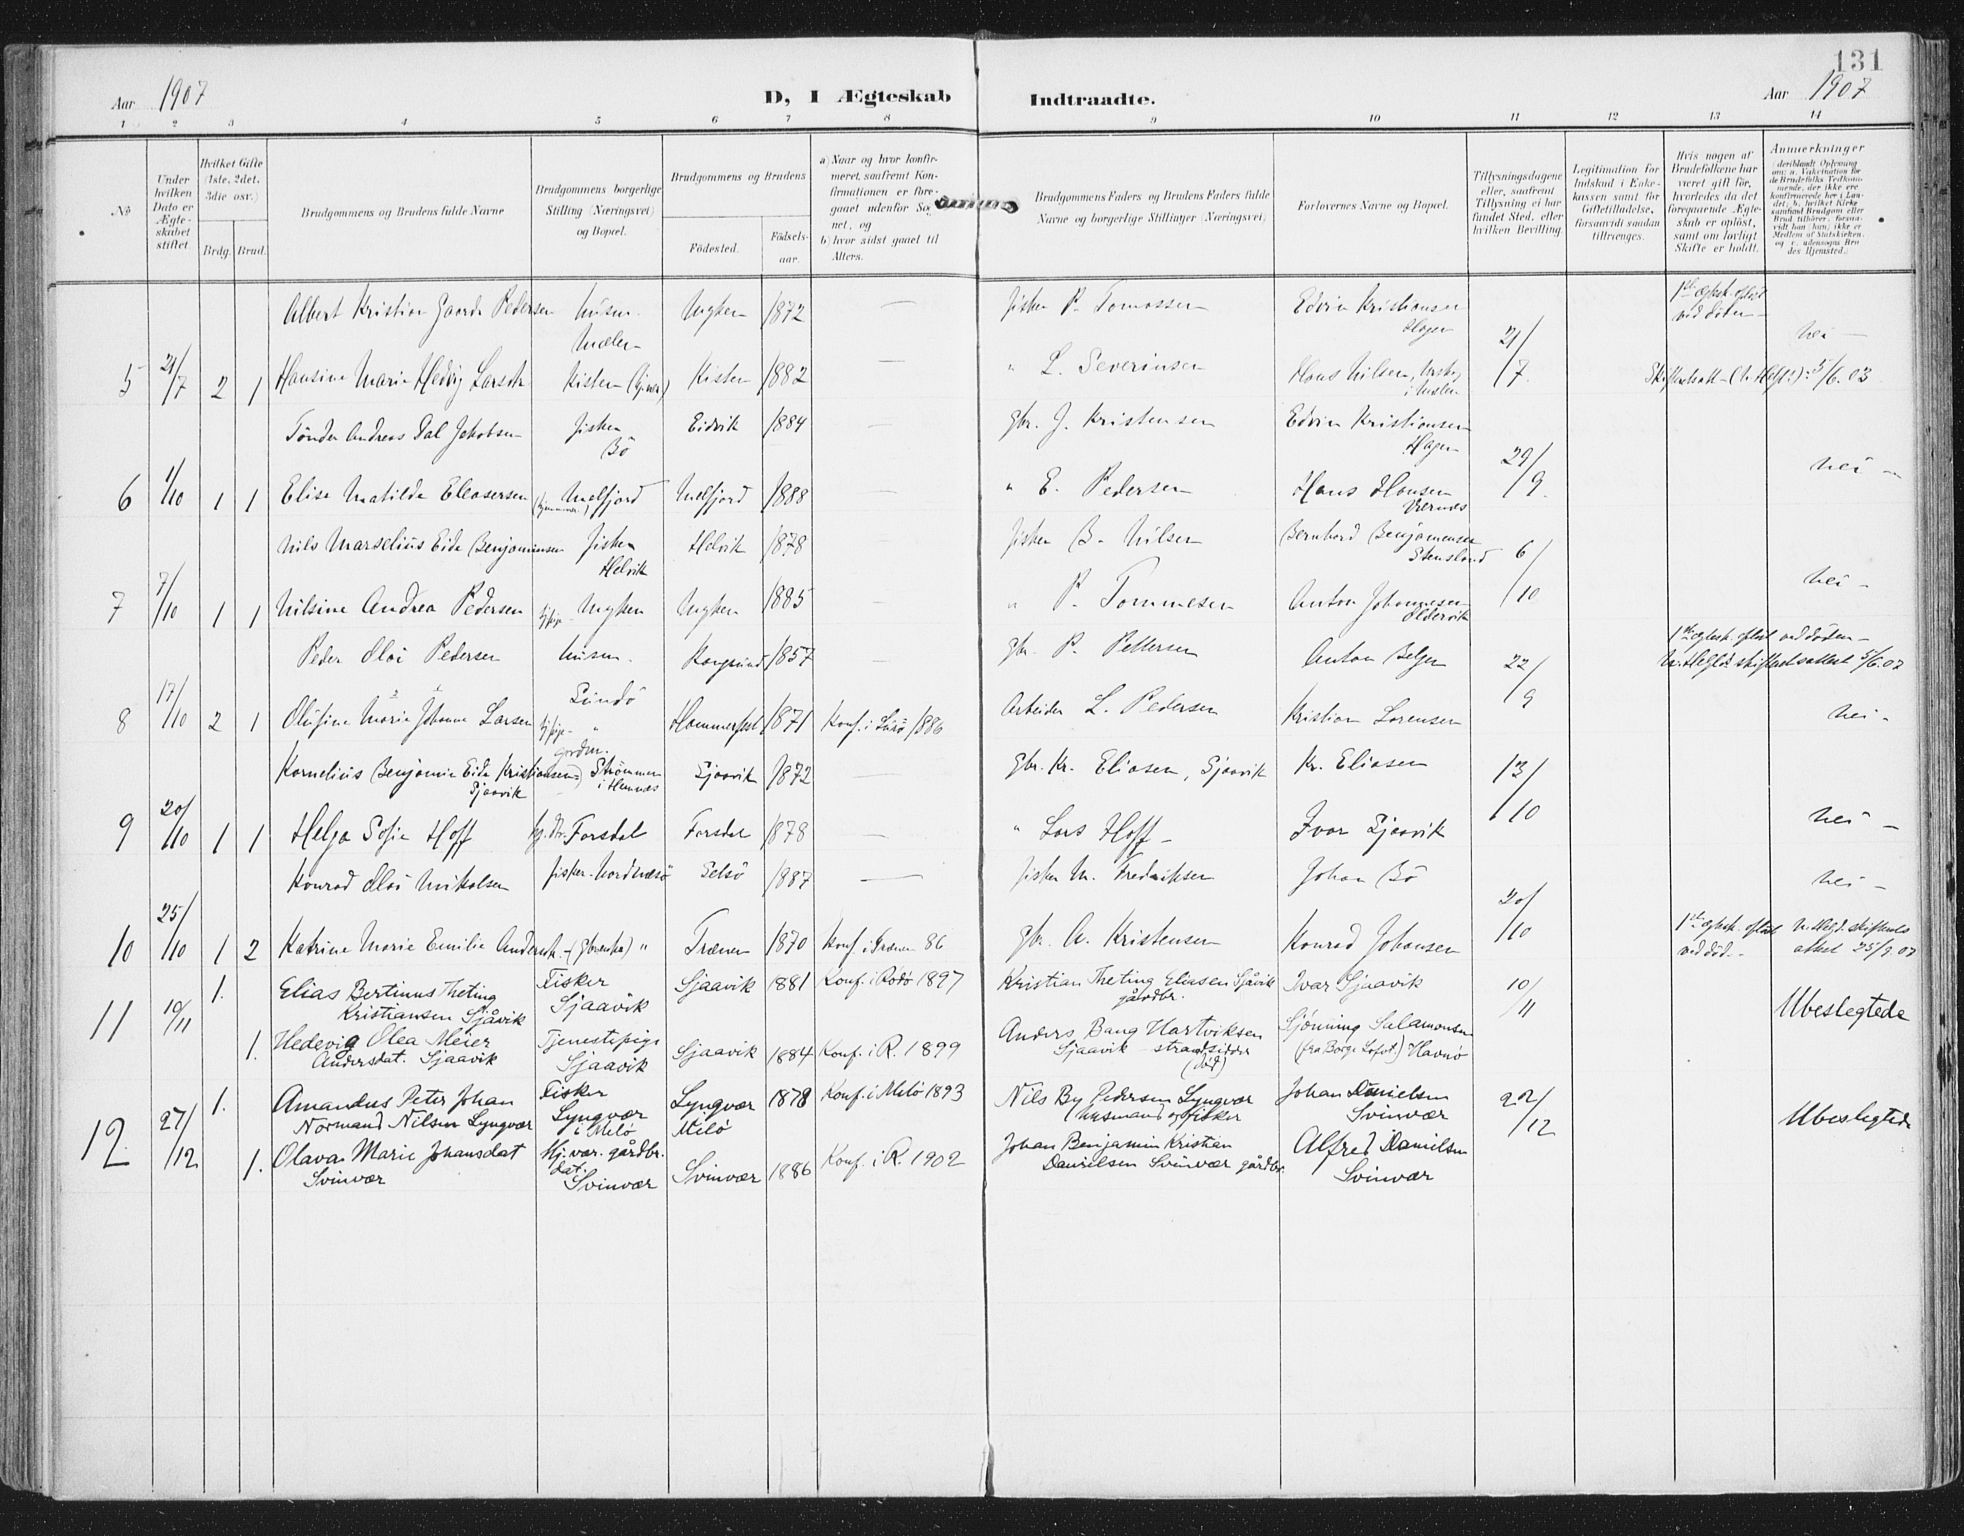 131
Aar 1907
D, I Ægteskab Indtraadte.
Aar 1907
1 2 3 4 5 6 7 8 9 10 11 12 13 14
No
Under hvilken Dato er Ægteskabet stiftet.
Hvilket Gifte (1ste, 2det, 3die osv.)
Brdg. Brud.
Brudgommens og Brudens fulde Navne
Brudgommens borgerlige Stilling (Næringsvei) og Bopæl.
Brudgommens og Brudens
Fødested.
Fødselsaar.
a) Naar og hvor konfirmeret, saafremt Konfirmationen er foregaaet udenfor Sognet, og
b) hvor sidst gaaet til Alters.
Brudgommens Faders og Brudens Faders fulde Navne og borgerlige Stillinger (Næringsvei)
Forlovernes Navne og Bopæl.
Tillysningsdagene eller, saafremt Tillysning ei har fundet Sted, efter hvilken Bevilling.
Legitimation for Indskud i Enkekassen samt for Giftetilladelse, forsaavidt saadan tiltrænges.
Hvis nogen af Brudefolkene har været gift før, hvorledes da det foregaaende Ægteskab er opløst, samt om lovligt Skifte er holdt.
Anmærkninger
Albert Kristian Gaarde Pedersen husm. Myken 1872 — fisker P. Tomassen Edvin Kristiansen Hagen 1ste ægtesk. opløst ved døden —
5 21/7 2 1 Hansine Marie Hedvig Larsdtr Kisten Kisten 1882 — " L. Severinsen Hans Nilsen 21/7 Skifteattest 5/6.03 nei —
Tønder Andreas Dal Jakobsen fisker Bø Eidvik 1884 — gbr. J. Kristensen Edvin Kristiansen Hagen
6 1/10 1 1 Elise Matilde Eleasersen Melfjord Melfjord 1888 — " E. Pedersen Hans Hansen Værnes 29/9. nei —
Nils Marselius Eide Benjaminsen fisker Helvik Helvik 1878 — fisker B. Nilsen Bernhard Benjaminsen Stensland
7 7/10 1 1 Nilsine Andrea Pedersen Myken Myken 1885 — " P. Tommesen Anton Johannesen Oldervik 6/10 nei —
Peder Olai Pedersen husm. Sundø 1857 — gbr. P. Pettersen Anton Selgen 1ste ægtesk. opløst ved døden —
8 17/10 2 1 Olufine Marie Johanne Larsen " Hammerfest 1871 Konf. i Lurø 1886 Arbeider L. Pedersen Kristian Sørensen 22/9 skifteattest 5/6.07 nei —
Kornelius Benjamin Eide Kristiansen Sjaavik gårdm. Strømmen i Hemnæs Sjaavik 1872 — gbr. Kr. Eliasen, Sjaavik Kr. Eliasen
9 20/10 1 1 Helga Sofie Hoff Forsdal Forsdal 1878 — " Lars Hoff — Ivar Sjaavik 13/10 nei —
Konrad Olai Nikolsen fisker Nordnæsø Selsø 1887 — fisker M. Fredriksen Johan Bø nei —
10 25/10 1 2 Katrine Marie Emilie Andersdtr. (gbrenke) " Trænen 1870 Konf. i Trænen 86 gbr. A. Kristensen Konrad Johansen 20/10 1ste ægtesk. opløst ved død. — skifteattest 25/9.07
11 10/11 1. Elias Bertinus Theting Kristiansen Sjåvik Fisker Sjaavik Sjaavik 1881 Konf. i Rødø 1897 Kristian Theting Eliasen Sjåvik gårdbr. Ivar Sjaavik 10/11 Ubeslegtede
1. Hedevig Olea Meier Andersdat. Sjaavik Tjenestepige Sjaavik Sjaavik 1884 Konf. i R. 1899 Anders Bang Hartviksen Sjaavik strandsidder (død) Sjønning Salamonsen (fra Borge Lofot.) Havnø
12. 27/12 1. Amandus Peter Johan Normand Nilsen Lyngvær Fisker Lyngvær i Melø Lyngvær Melø 1878 Konf. i Melø 1893 Nils By Pedersen Lyngvær husmand og fisker Johan Danielsen Svinvær 22/12 Ubeslegtede
1. Olava Marie Johansdat Svinvær Hj.vær. gårdbr. dat. Svinvær Svinvær 1886 Konf. i R. 1902 Johan Benjamin Kristian Danielsen Svinvær gårdbr. Alfred Danielsen Svinvær